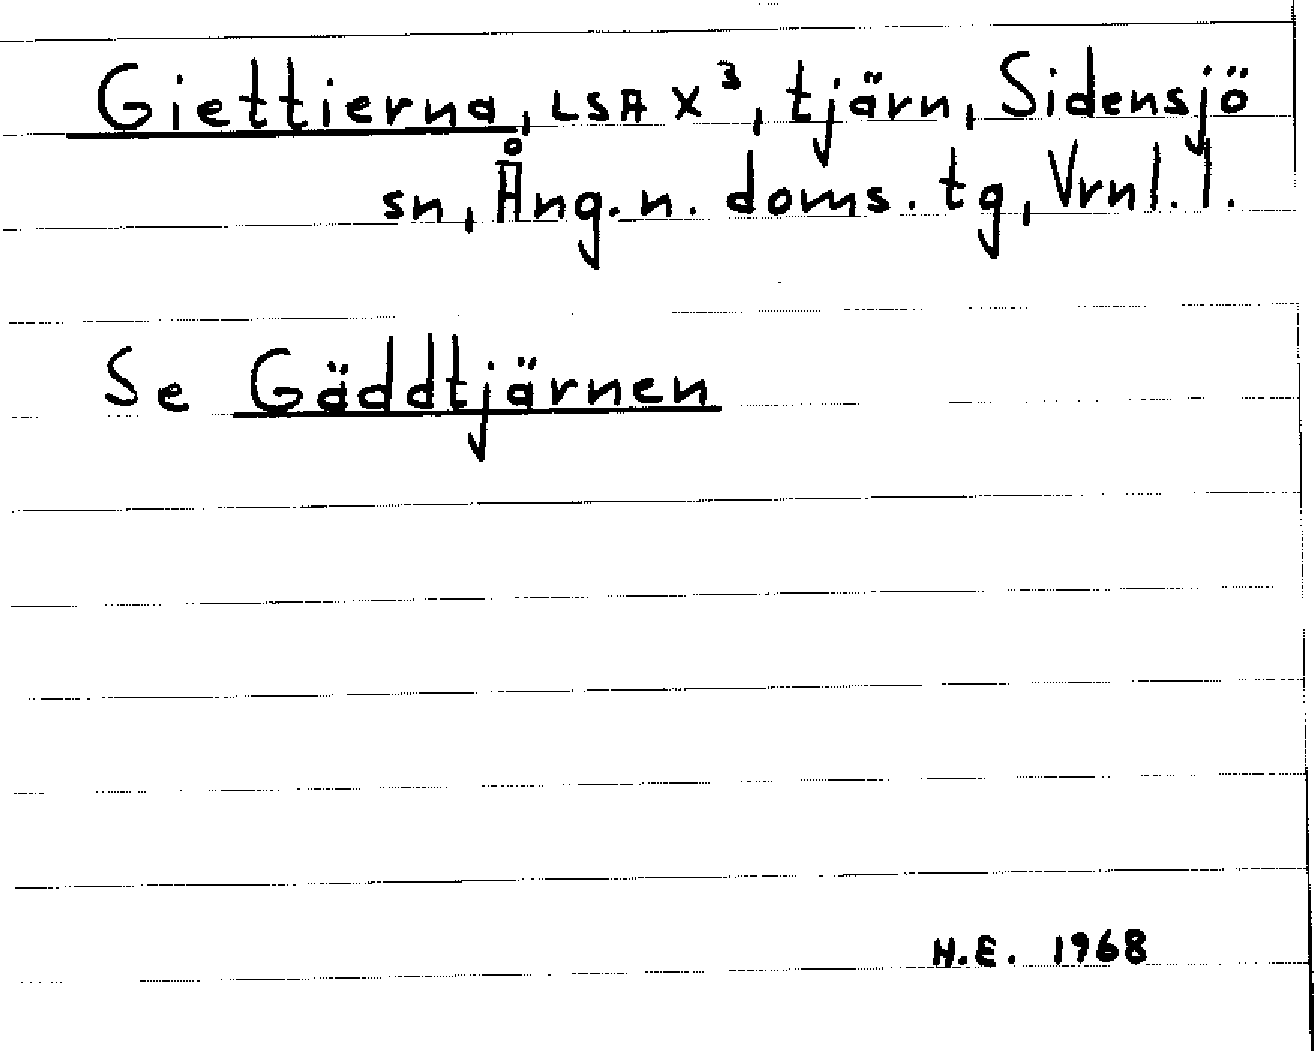 Giettierna, LSA X³, tjärn, Sidensjö
sn, Ång. n. doms. tg, Vrnl. l.
Se Gäddtjärnen
H.E. 1968